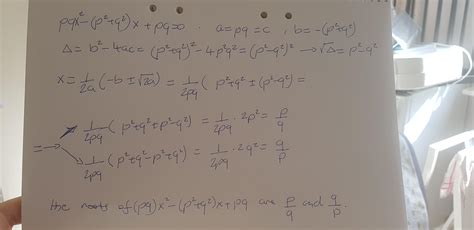 pqx² - (p²+q²)x + pq = 0 . a = pq = c , b = -(p²+q²)
Δ = b² - 4ac = (p²+q²)² - 4p²q² = (p²-q²)² → √Δ = p²-q²
x = 1/2a (-b ± √Δ) = 1/2pq ( p²+q² ± (p²-q²) =
1/2pq ( p²+q²+p²-q²) = 1/2pq · 2p² = p/q
= → 1/2pq (p²+q²-p²+q²) = 1/2pq · 2q² = q/p
the roots of (pq)x² - (p²+q²)x + pq are p/q and q/p.